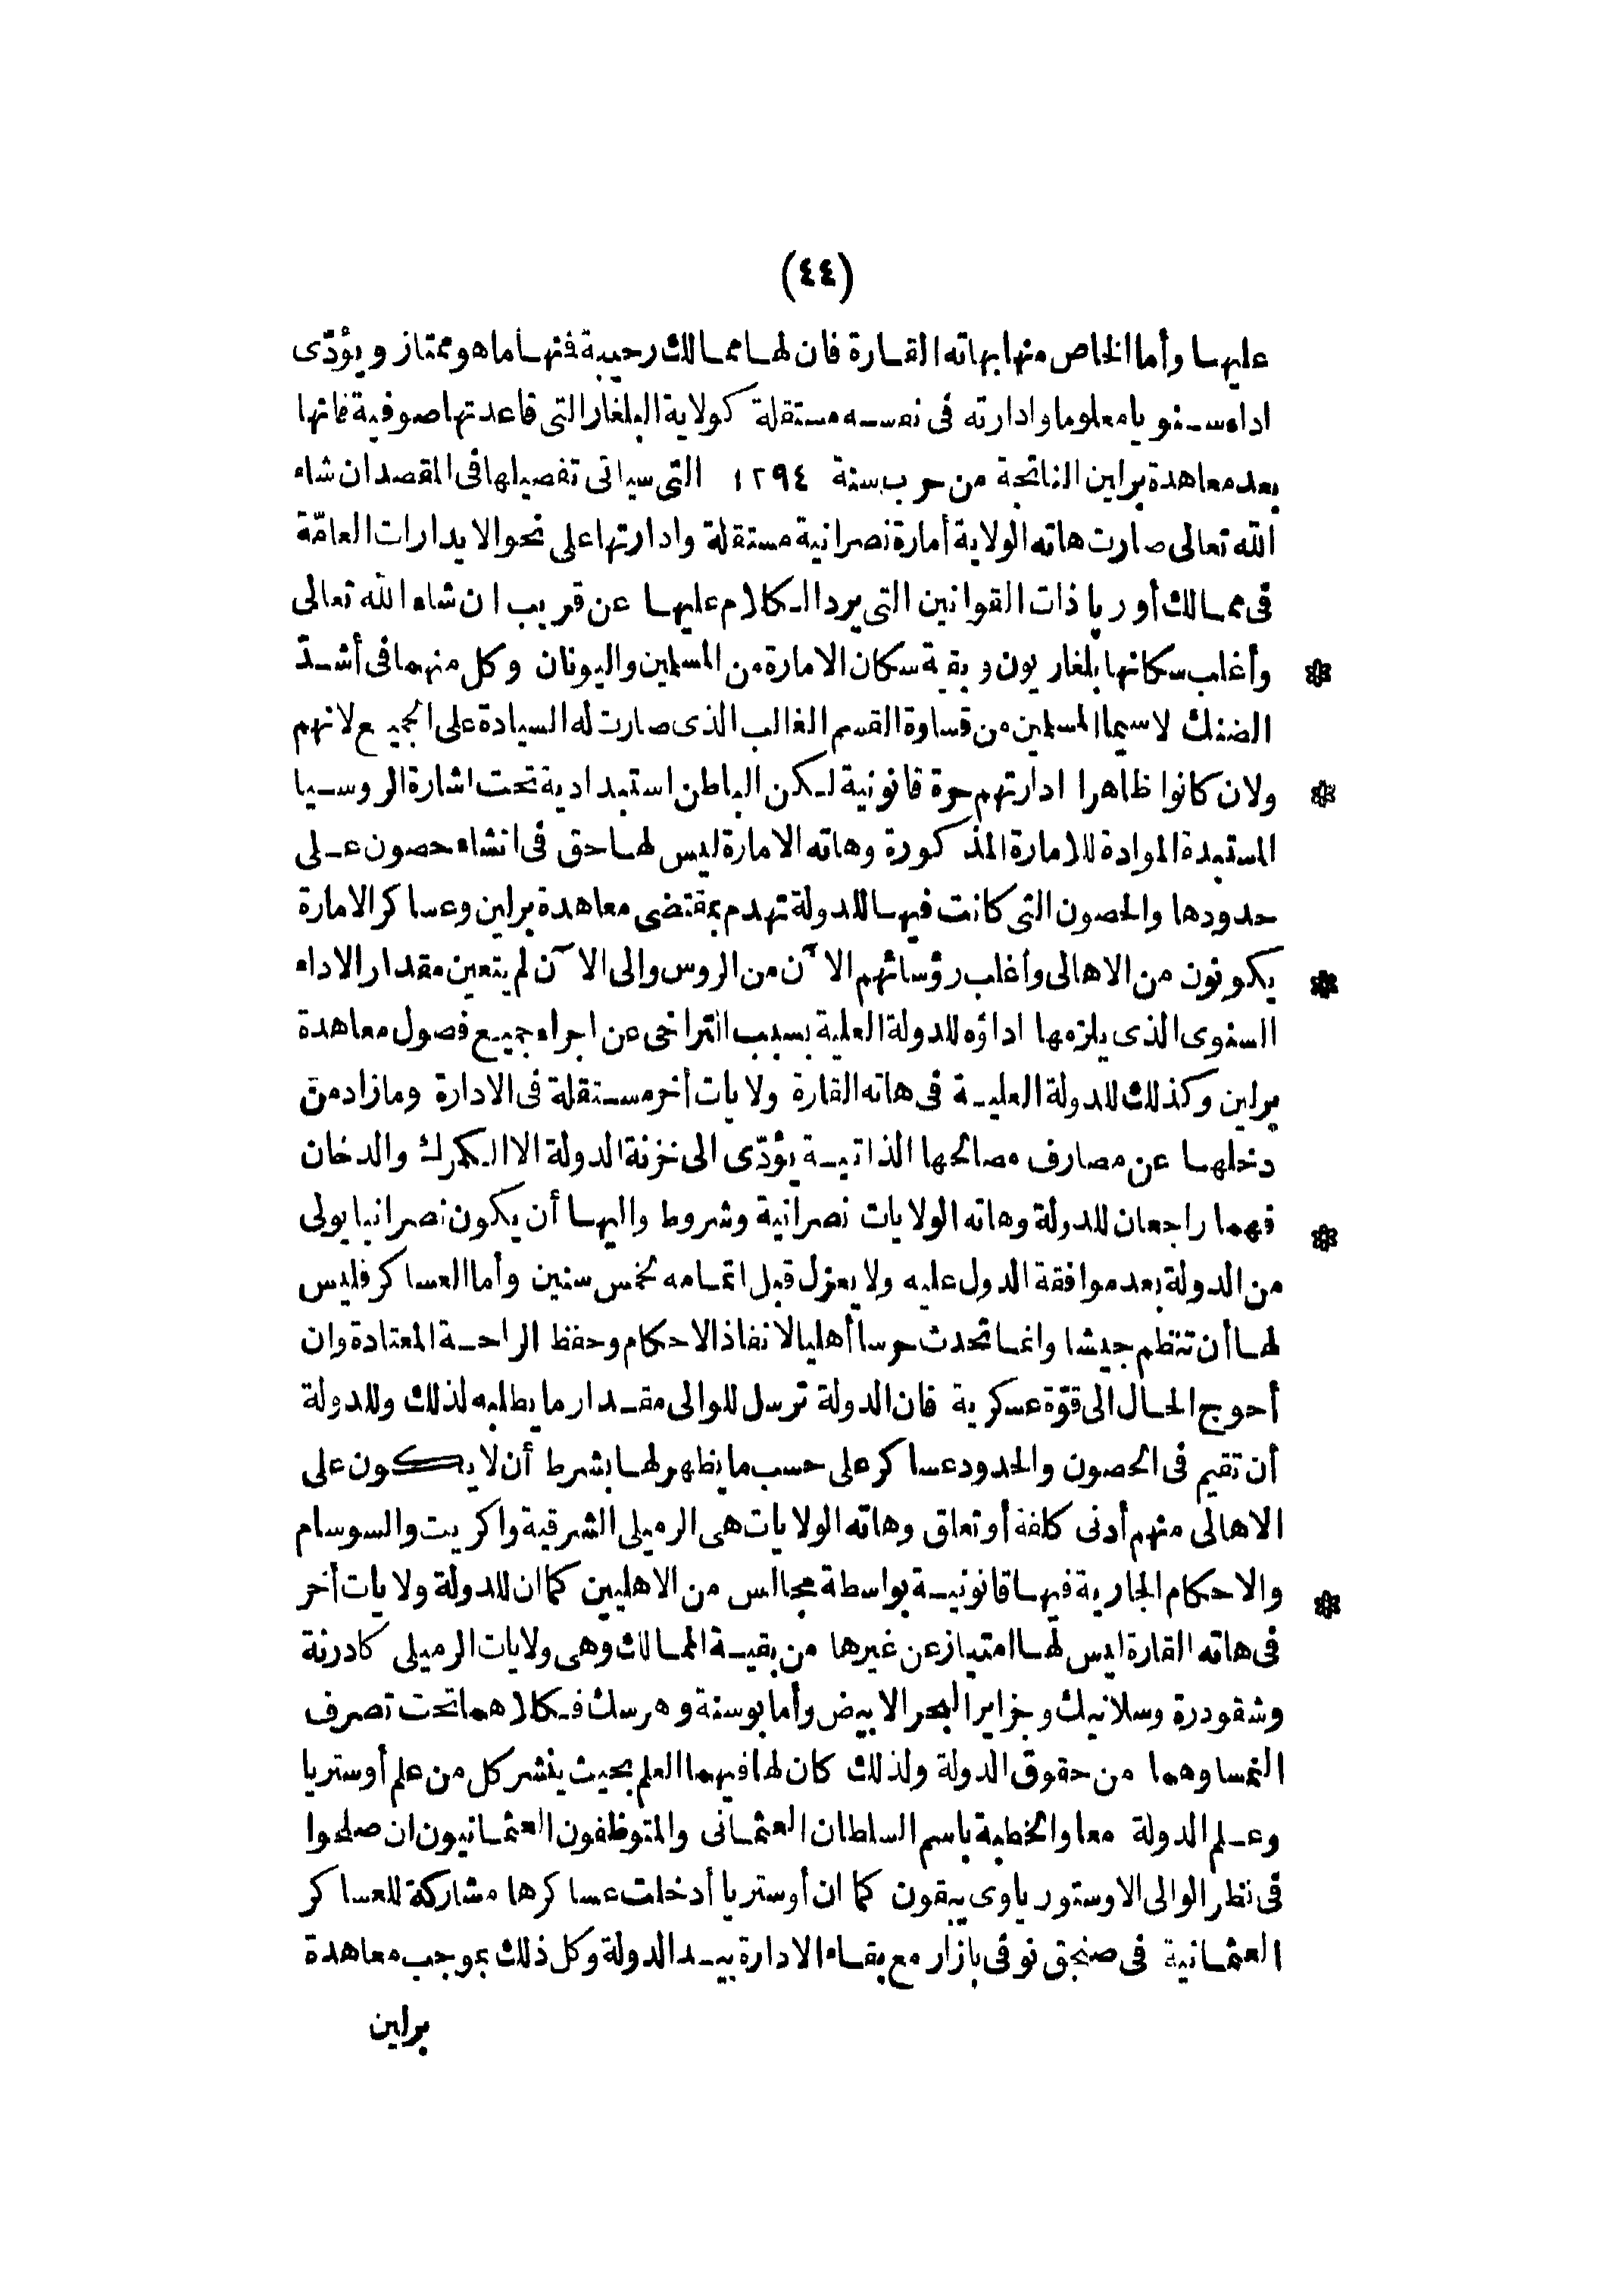 (٤٤)
عليها وأما الخاص منها بهاته القارة فان لها ممالك رحيبة فنها ما هو ممتاز و يؤدّى
اداء سنو يا معلوما وادارته فى نفسه مستقلة كولاية البلغار التى قاعدتها صوفية فانها
بعد معاهدة براين الناتجة من حرب سنة ١٢٩٤ التى سياتى تفصيلها فى المقصد ان شاء
الله تعالى صارت هاته الولاية أمارة نصرانية مستقلة وادارتها على نحو الايدارات العامّة
فى ممالك أور پا ذات القوانين التى يرد الكلام عليها عن قريب ان شاء الله تعالى
* وأغلب سكانها بلغار يون و بقية سكان الامارة من المسلمين واليونان وكل منهما فى أشدّ
الضنك لاسيما المسلمين من قساوة القسم الغالب الذى صارت له السيادة على الجميع لانهم
* ولان كانوا ظاهرا ادارتهم حرة قانونية لكن الباطن استبدادية تحت اشارة الروسيا
المستبدة الموادة للامارة المذكورة وهاته الامارة ليس لها حق فى انشاء حصون على
حدودها والحصون التى كانت فيها للدولة تهدم بمقتضى معاهدة براين وعساكر الامارة
* يكونون من الاهالى وأغلب رؤسائهم الآن من الروس والى الآن لم يتعين مقدار الاداء
السنوى الذى يلزمها اداؤه للدولة العلية بسبب التراخى عن اجراء جميع فصول معاهدة
برلين وكذلك للدولة العلية فى هاته القارة ولايات أخر مستقلة فى الادارة ومازاد من
دخلها عن مصارف مصالحها الذاتية يؤدّى الى خزنة الدولة الا الكمرك والدخان
* فهما راجعان للدولة وهاته الولايات نصرانية وشروط واليها أن يكون نصرانيا يولى
من الدولة بعد موافقة الدول عليه ولا يعزل قبل اتمامه لخمس سنين وأما العساكر فليس
لها أن تنظم جيشا وانما تحدث حرسا أهليا لانفاذ الاحكام وحفظ الراحة المعتادة وان
أحوج الحال الى قوّة عسكرية فان الدولة ترسل للوالى مقدار ما يطلبه لذلك وللدولة
أن تقيم فى الحصون والحدود عساكر على حسب ما يظهر لها بشرط أن لا يكون على
الاهالى منهم أدنى كلفة أو تعلق وهاته الولايات هى الرميلى الشرقية واكريت والسوسام
* والاحكام الجارية فيها قانونية بواسطة مجالس من الاهليين كما ان للدولة ولايات أخر
فى هاته القارة ليس لها امتياز عن غيرها من بقية الممالك وهى ولايات الرميلى كادرنة
وشقودرة وسلانيك وجزاير البحر الابيض وأما بوسنة وهرسك فكلاهما تحت تصرف
النمسا وهما من حقوق الدولة ولذلك كان لها فيهما العلم بحيث ينشر كل من علم أوستريا
وعلم الدولة معا والخطبة باسم السلطان العثمانى والمتوظفون العثمانيون ان صلحوا
فى نظر الوالى الاوستورياوى يبقون كما ان أوستريا أدخلت عساكرها مشاركة للعساكر
العثمانية فى صنجق نوفى بازار مع بقاء الادارة بيد الدولة وكل ذلك بموجب معاهدة
برلين